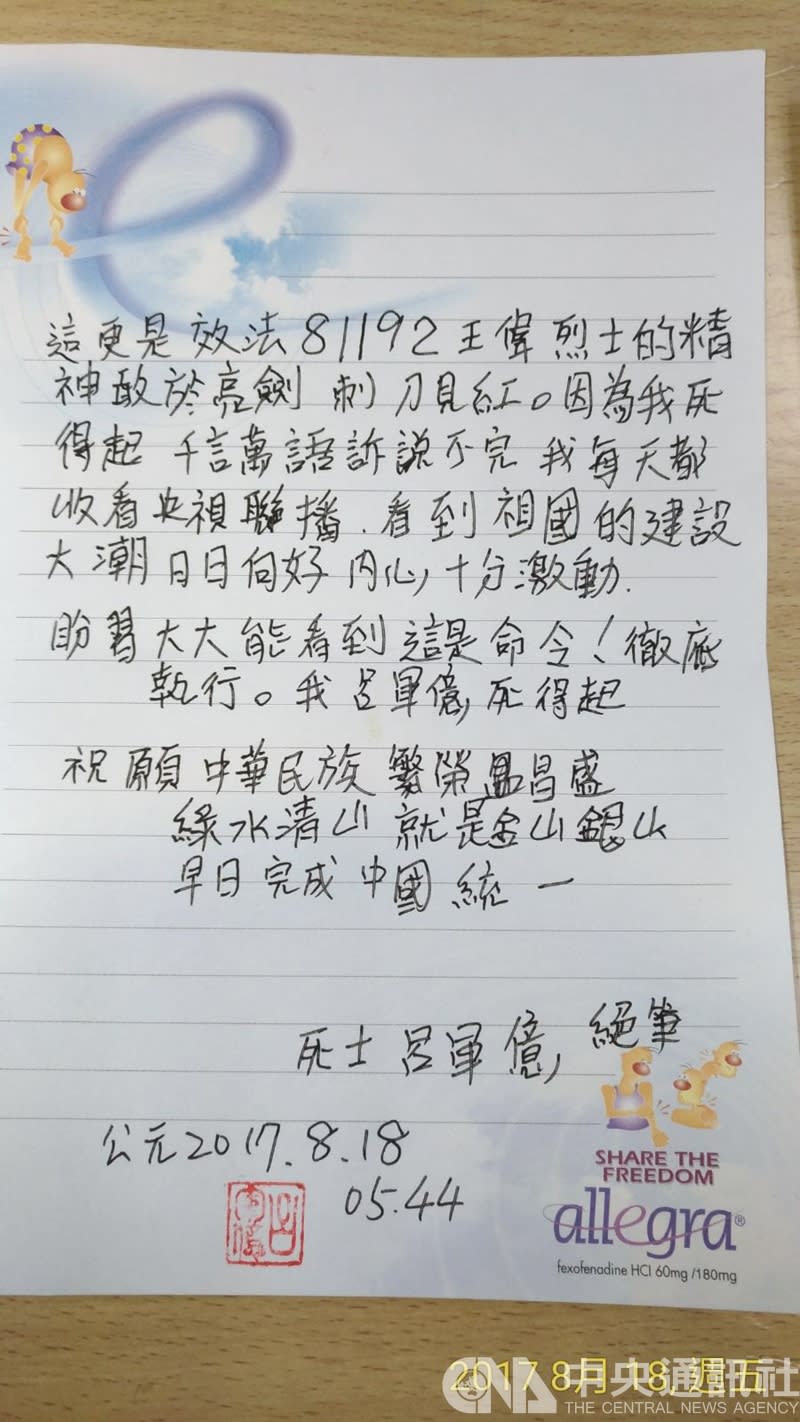 這更是效法81192王偉烈士的精
神敢於亮劍 刺刀見紅。因為我死
得起 千言萬語訴說不完 我每天都
收看央視聯播.看到祖國的建設
大潮日日向好 內心十分激動.
盼習大大能看到 這是命令!徹底
執行。我呂軍億,死得起
祝願中華民族繁榮昌盛
綠水清山 就是金山銀山
早日完成中國統一
死士呂軍億,絕筆
公元2017.8.18
05.44
呂軍億
SHARE THE
FREEDOM
allegra®
fexofenadine HCl 60mg /180mg
2017 8月 18, 週五
CNA 中央通訊社
THE CENTRAL NEWS AGENCY